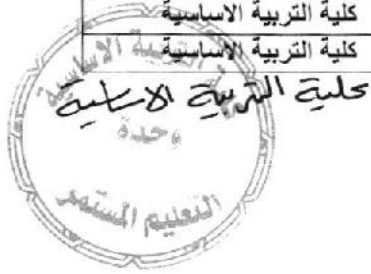 كلية التربية الاساسية
كلية التربية الاساسية
كلية التربية الاساسية
التربية الاساسية
وحدة
التعليم المستمر